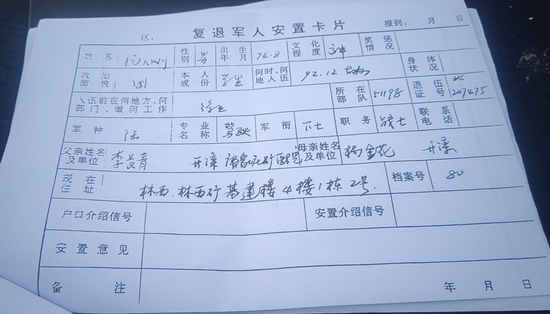 区： 复退军人安置卡片 报到： 月 日
姓名 性别 男 出生年月 72.8 文化程度 奖惩情况
政治面貌 团 本人成份 学生 何时、何地入伍 92.12 身体状况
入伍前在何地方、何部门、做何工作 所在部队 51198 退伍证号
军种 陆 专业名称 驾驶 军衔 下士 职务 战士 联系电话
父亲姓名及单位 开滦 母亲姓名及单位 杨金花 开滦
现在住址 林西.林西矿基建楼4楼1栋2号. 档案号 80
户口介绍信号 安置介绍信号
安置意见
备注 年 月 日